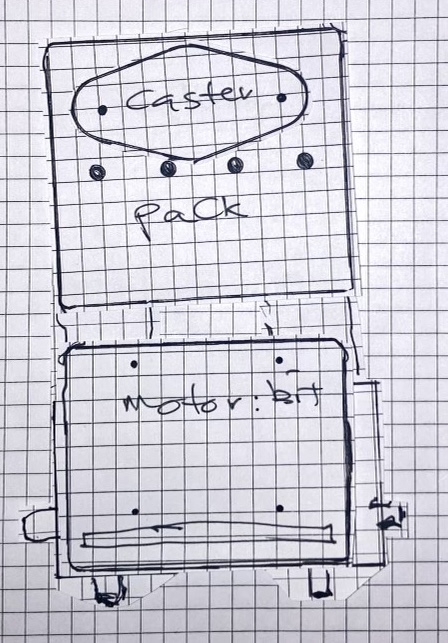 Caster
pack
Motor:bit